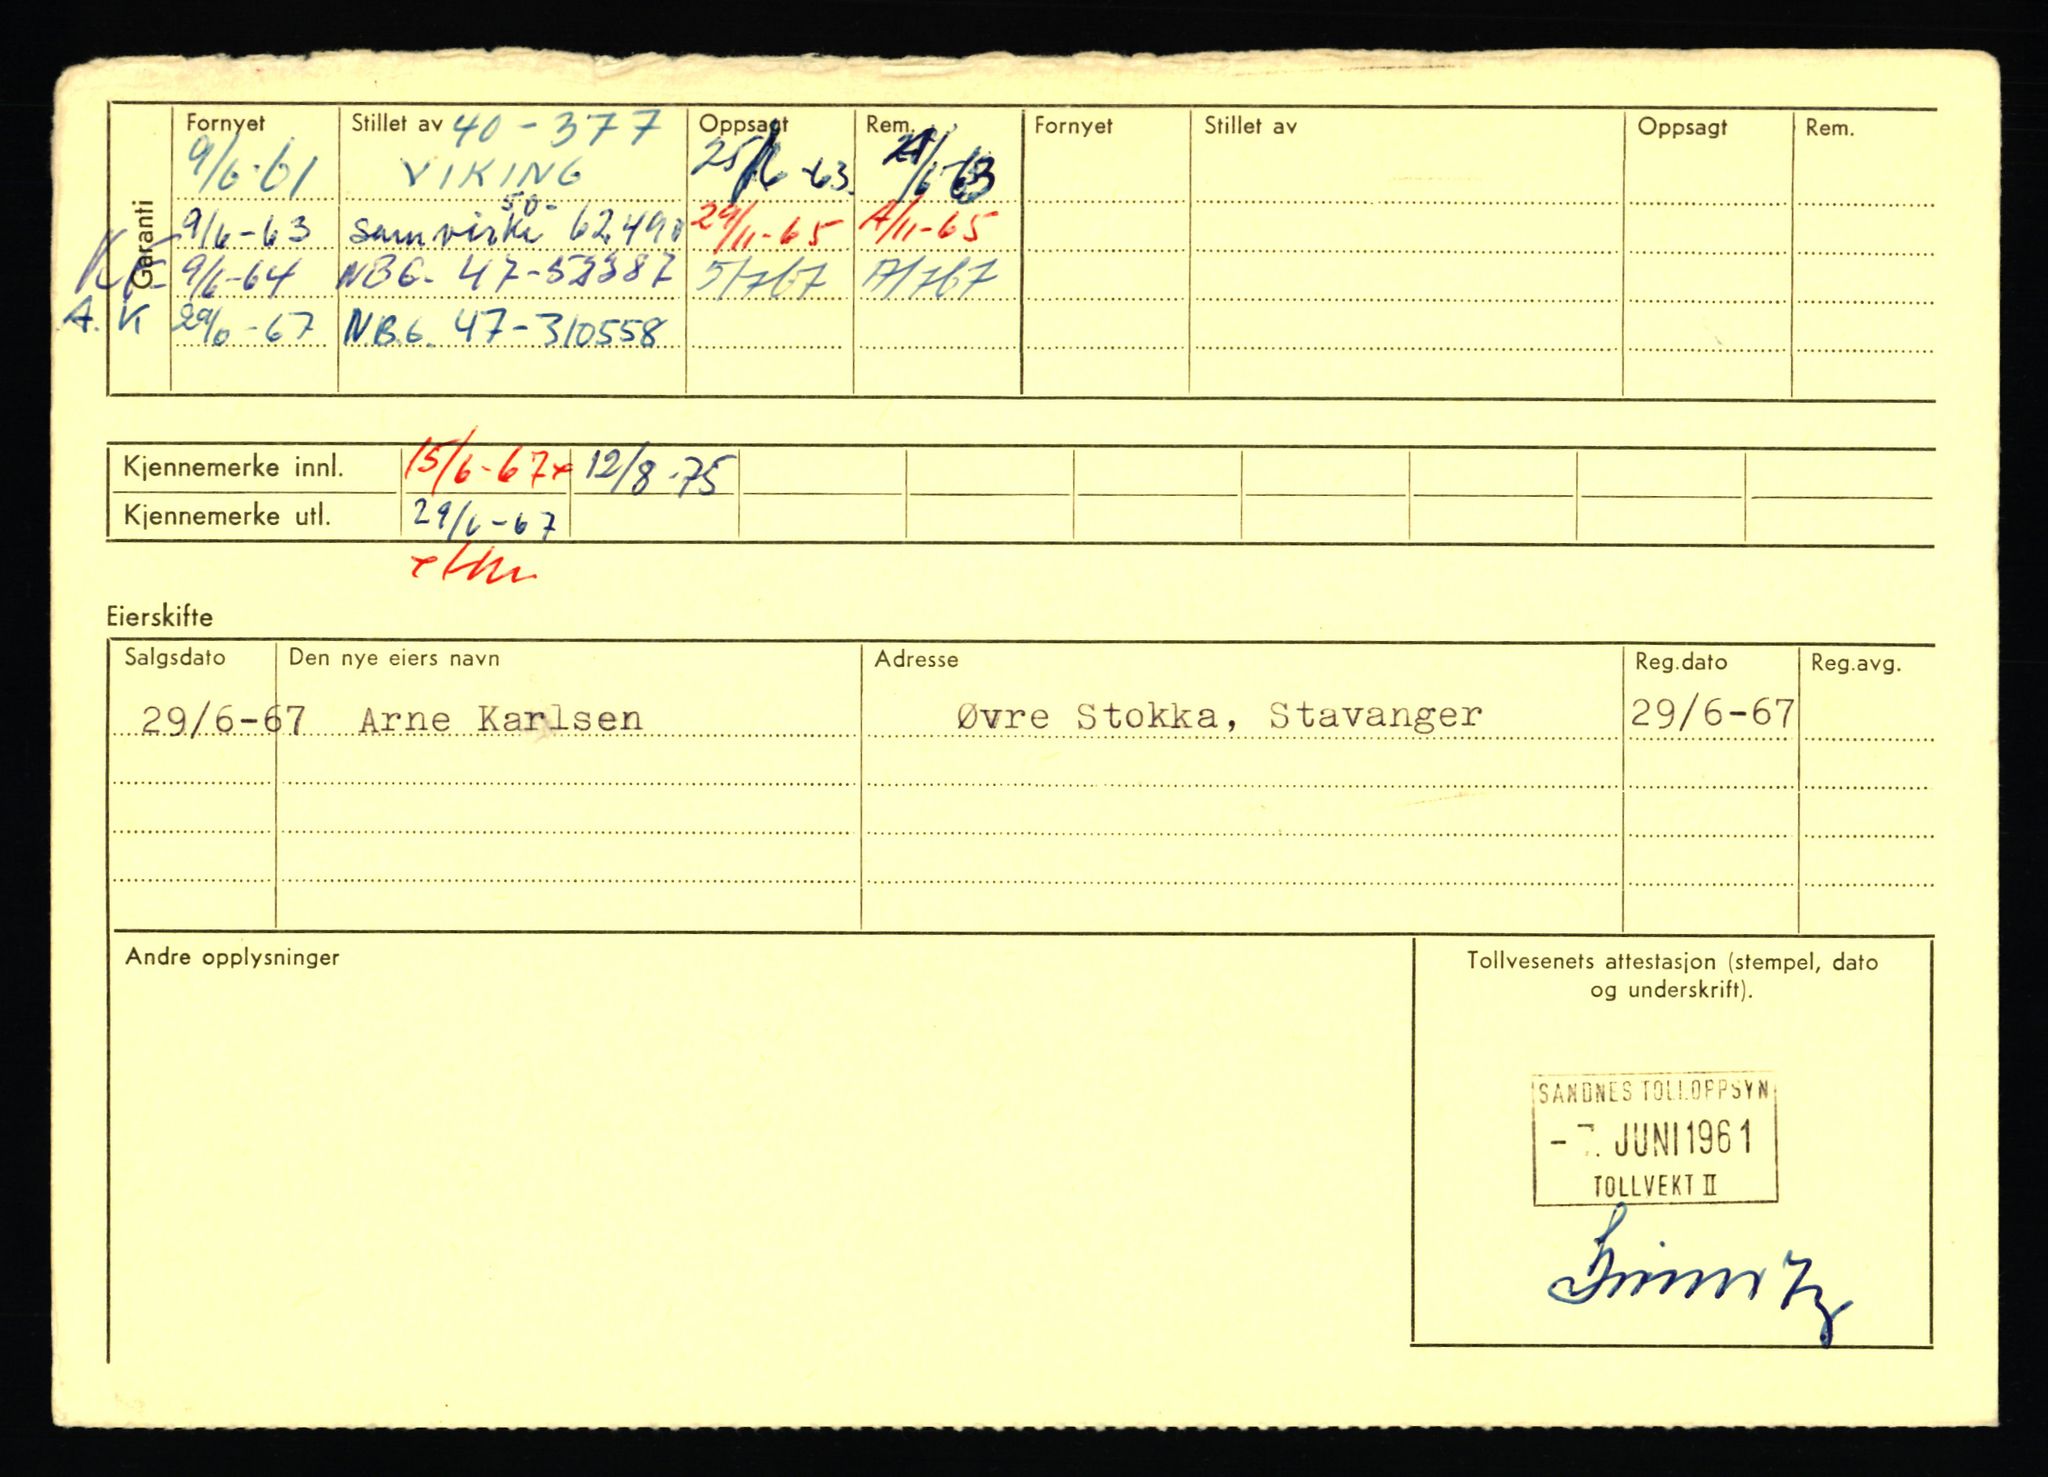 Garanti
Fornyet Stillet av 40-377 Oppsagt Rem. Fornyet Stillet av Oppsagt Rem.
9/6-61 VIKING 25/6-63
50-
9/6-63 Samvirke 29/11-65 A/11-65
9/6-64 NBG. 5/7 67 A/7 67
A.K 29/6-67 N.B.G. 47-310558
Kjennemerke innl. 15/6-67x 12/8-75
Kjennemerke utl. 29/6-67
Eierskifte
Salgsdato Den nye eiers navn Adresse Reg.dato Reg.avg.
29/6-67 Arne Karlsen Øvre Stokka, Stavanger 29/6-67
Andre opplysninger
Tollvesenets attestasjon (stempel, dato
og underskrift).
SANDNES TOLLOPPSYN
-7. JUNI 1961
TOLLVEKT II